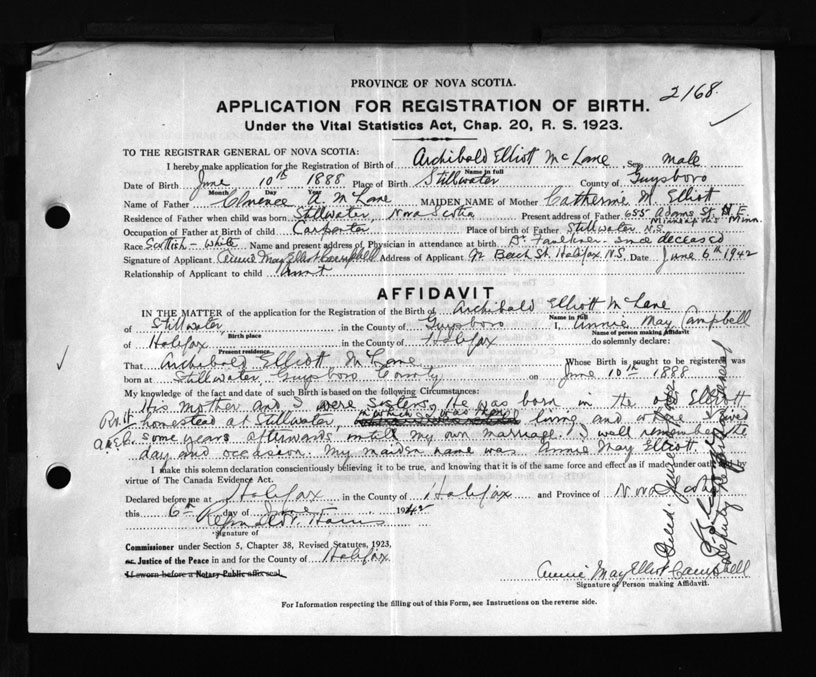 PROVINCE OF NOVA SCOTIA.
2168.
APPLICATION FOR REGISTRATION OF BIRTH.
Under the Vital Statistics Act, Chap. 20, R. S. 1923.
TO THE REGISTRAR GENERAL OF NOVA SCOTIA:
I hereby make application for the Registration of Birth of Archibald Elliott McLane Sex male
Name in full
Date of Birth June 10th 1888 Place of Birth Stillwater County of Guysboro
Month Day Year
Name of Father Clarence A. McLane MAIDEN NAME of Mother Catherine M. Elliott
Residence of Father when child was born Stillwater, Nova Scotia Present address of Father 655 Adams St. N.E. Minneapolis Minn.
Occupation of Father at Birth of child Carpenter Place of birth of Father Stillwater N.S.
Race Scottish - White Name and present address of Physician in attendance at birth Dr Faulkner - since deceased
Signature of Applicant Annie May Elliot Campbell Address of Applicant 92 Beech St. Halifax N.S. Date June 6th 1942
Relationship of Applicant to child Aunt
AFFIDAVIT
IN THE MATTER of the application for the Registration of the Birth of Archibald Elliott McLane
Name in full
of Stillwater, in the County of Guysboro I, Annie May Campbell
Birth place Name of person making Affidavit
of Halifax in the County of Halifax do solemnly declare:
Present residence
That Archibald Elliott McLane, Whose Birth is sought to be registered was
born at Stillwater, Guysboro County on June 10th 1888
My knowledge of the fact and date of such Birth is based on the following Circumstances:
His mother and I were sisters. He was born in the old Elliott
R.V.H. homestead at Stillwater, in which I was then living and where I lived
A.M.E.C. some years afterwards until my own marriage. I well remember the
day and occasion. My maiden name was Annie May Elliott.
I make this solemn declaration conscientiously believing it to be true, and knowing that it is of the same force and effect as if made under oath by
virtue of The Canada Evidence Act.
Declared before me at Halifax in the County of Halifax and Province of Nova Scotia
this 6th day of June 1942
Reginald V. Harris
Signature of
Commissioner under Section 5, Chapter 38, Revised Statutes, 1923,
or Justice of the Peace in and for the County of Halifax
If sworn before a Notary Public affix seal.
Annie May Elliot Campbell
Signature of Person making Affidavit.
Deputy Registrar General
For Information respecting the filling out of this Form, see Instructions on the reverse side.